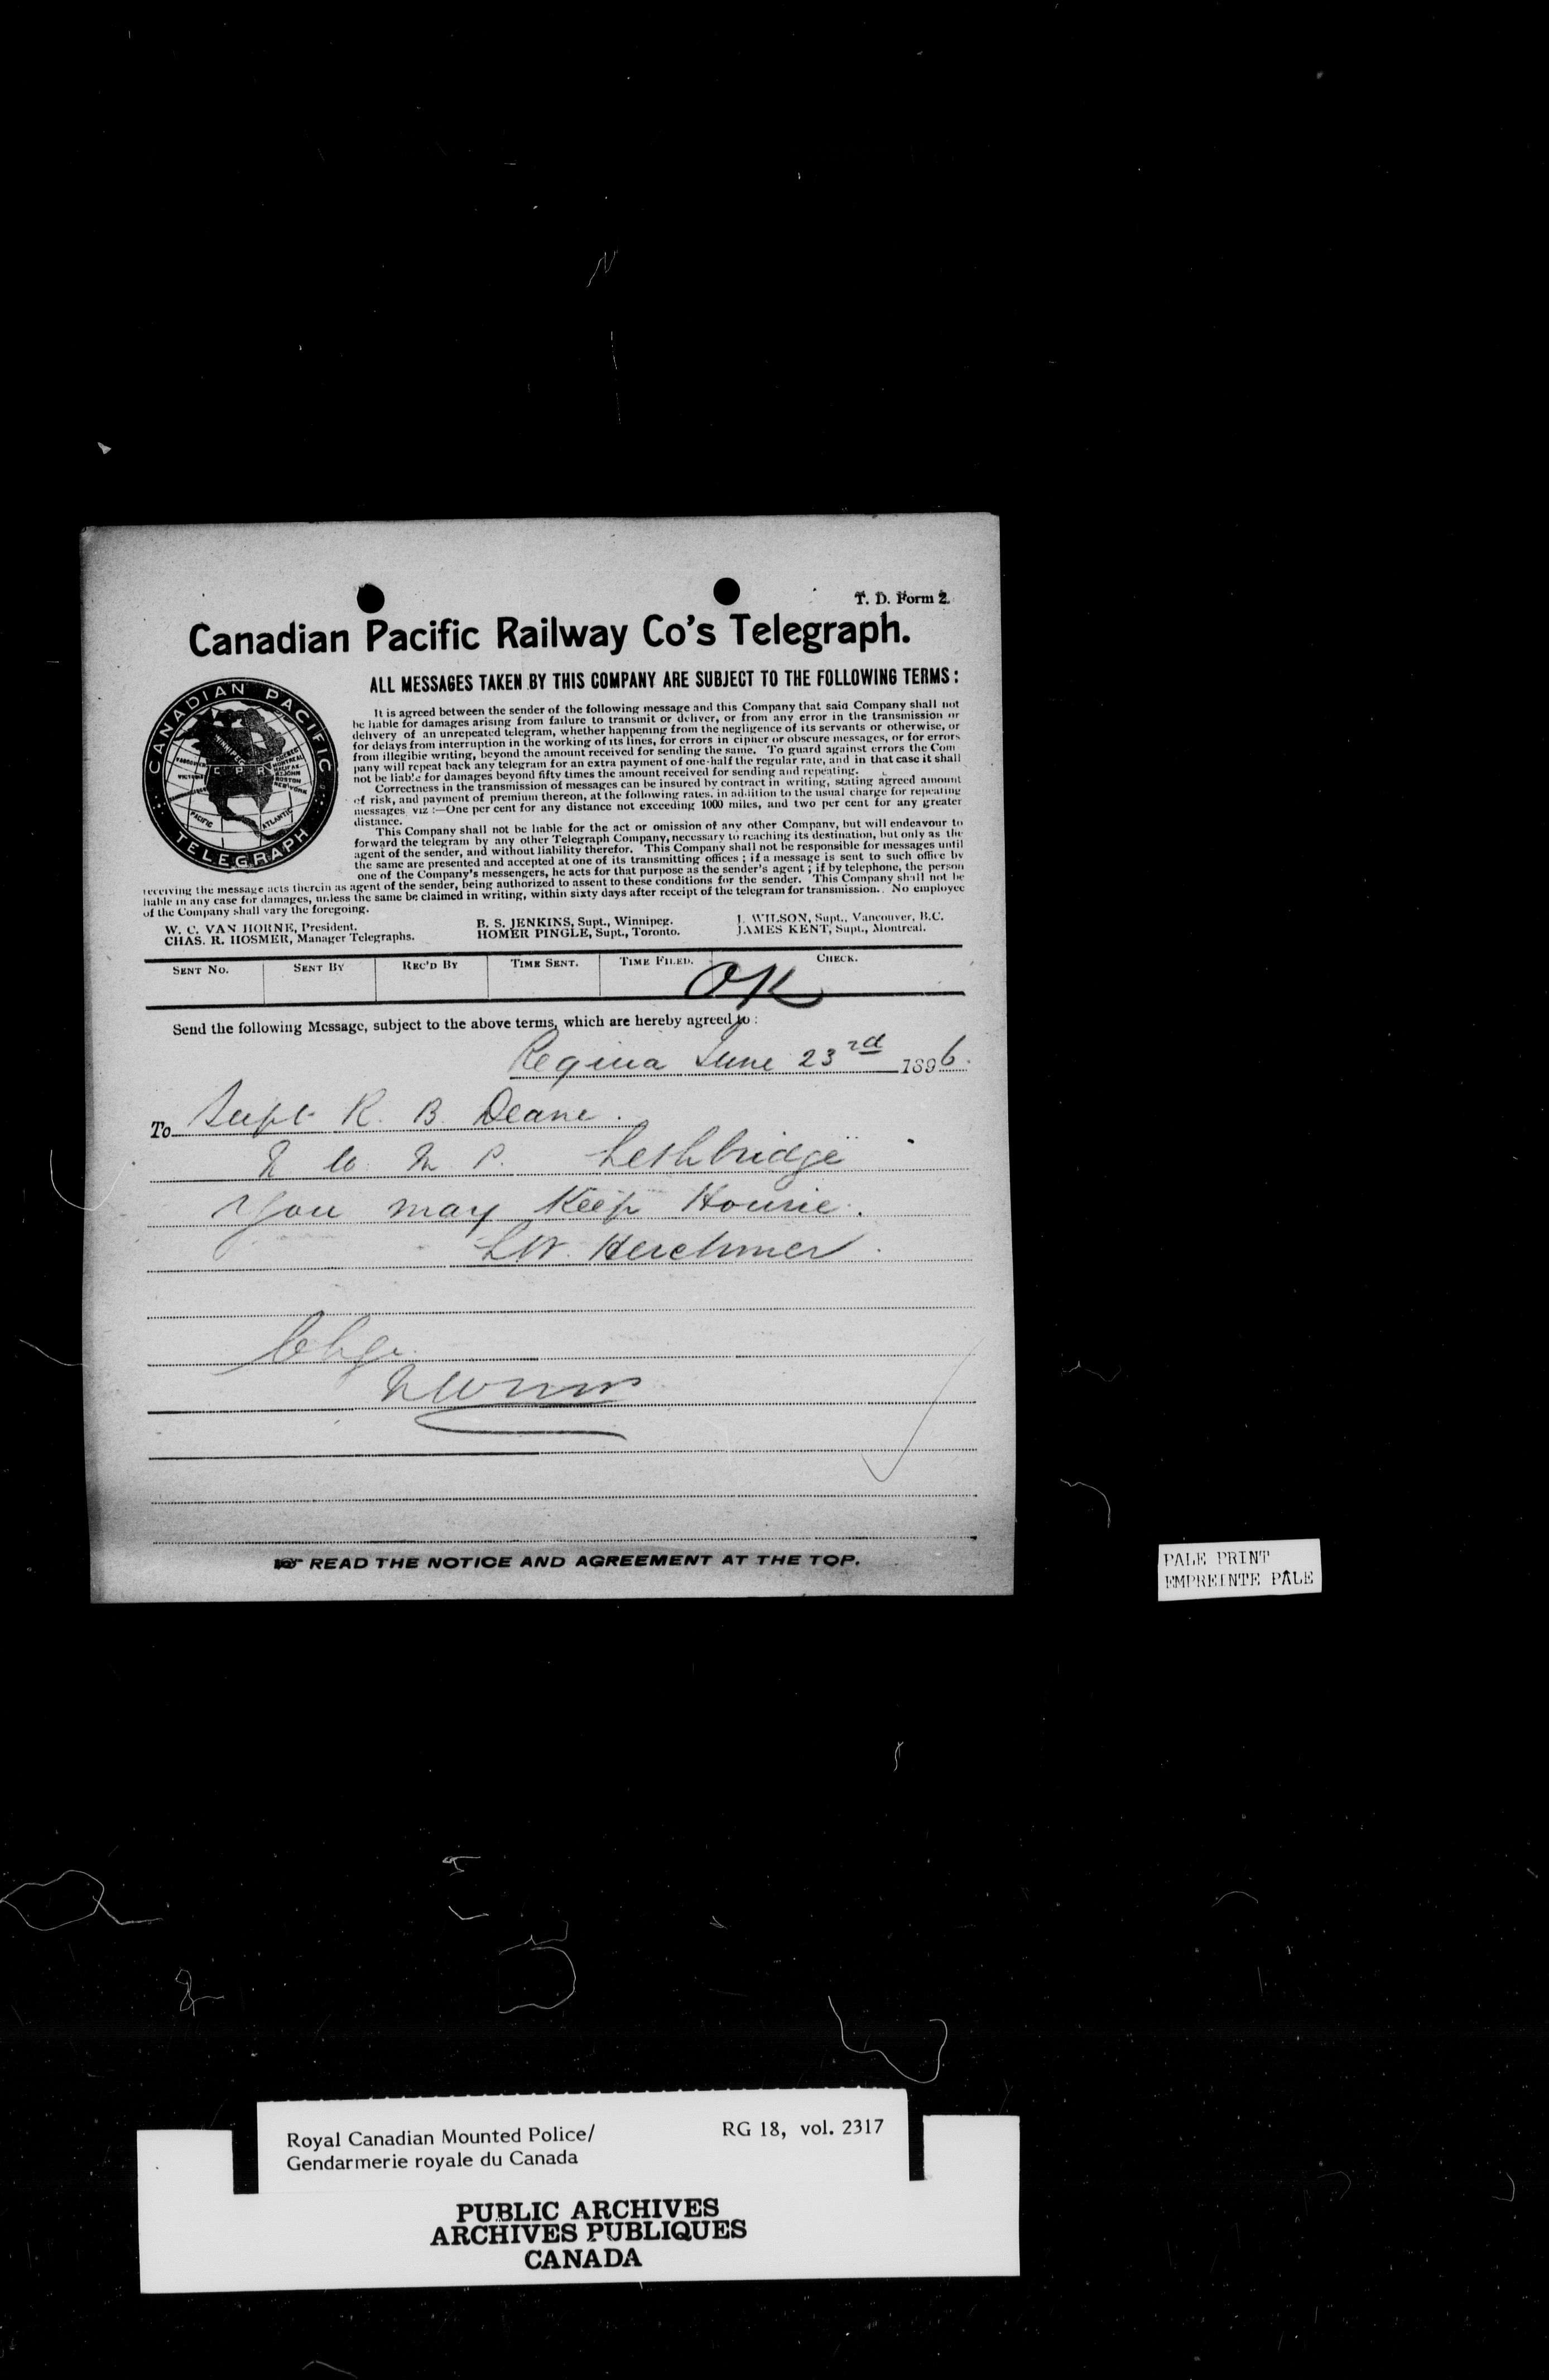 T. D. Form 2.
Canadian Pacific Railway Co's Telegraph.
ALL MESSAGES TAKEN BY THIS COMPANY ARE SUBJECT TO THE FOLLOWING TERMS :
CANADIAN PACIFIC
TELEGRAPH
WINNIPEG
C P R
PACIFIC
ATLANTIC
It is agreed between the sender of the following message and this Company that said Company shall not
be liable for damages arising from failure to transmit or deliver, or from any error in the transmission or
delivery of an unrepeated telegram, whether happening from the negligence of its servants or otherwise, or
for delays from interruption in the working of its lines, for errors in cipher or obscure messages, or for errors
from illegible writing, beyond the amount received for sending the same. To guard against errors the Com
pany will repeat back any telegram for an extra payment of one-half the regular rate, and in that case it shall
not be liable for damages beyond fifty times the amount received for sending and repeating.
Correctness in the transmission of messages can be insured by contract in writing, stating agreed amount
of risk, and payment of premium thereon, at the following rates. in addition to the usual charge for repeating
messages viz :—One per cent for any distance not exceeding 1000 miles, and two per cent for any greater
distance.
This Company shall not be liable for the act or omission of any other Company, but will endeavour to
forward the telegram by any other Telegraph Company, necessary to reaching its destination, but only as the
agent of the sender, and without liability therefor. This Company shall not be responsible for messages until
the same are presented and accepted at one of its transmitting offices ; if a message is sent to such office by
one of the Company's messengers, he acts for that purpose as the sender's agent ; if by telephone, the person
receiving the message acts therein as agent of the sender, being authorized to assent to these conditions for the sender. This Company shall not be
liable in any case for damages, unless the same be claimed in writing, within sixty days after receipt of the telegram for transmission. No employee
of the Company shall vary the foregoing.
W. C. VAN HORNE, President. B. S. JENKINS, Supt., Winnipeg. J. WILSON, Supt., Vancouver, B.C.
CHAS. R. HOSMER, Manager Telegraphs. HOMER PINGLE, Supt., Toronto. JAMES KENT, Supt., Montreal.
SENT NO. SENT BY REC'D BY TIME SENT. TIME FILED. CHECK.
OK
Send the following Message, subject to the above terms, which are hereby agreed to :
Regina June 23rd 1896.
To Supt R. B. Deane.
N W M P. Lethbridge
You may Keep Hourie.
LW. Herchmer.
Chge.
READ THE NOTICE AND AGREEMENT AT THE TOP.
PALE PRINT
EMPREINTE PÂLE
Royal Canadian Mounted Police/ RG 18, vol. 2317
Gendarmerie royale du Canada
PUBLIC ARCHIVES
ARCHIVES PUBLIQUES
CANADA